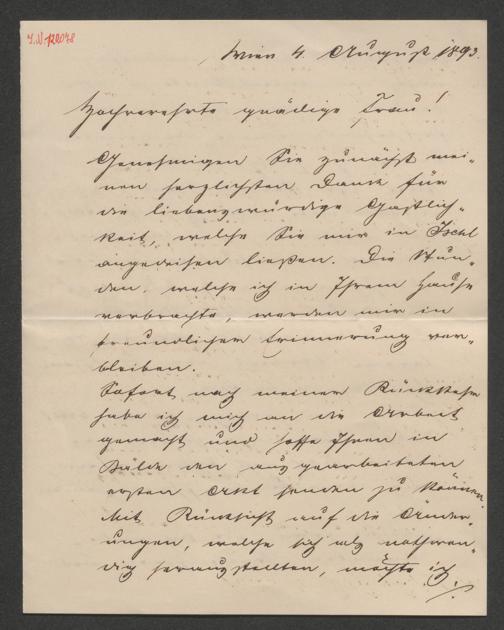 J.N. 120078
Wien 4. August 1893.
Hochverehrte gnädige Frau!
Genehmigen Sie zunächst mei-
nen herzlichsten Dank für
die liebenswürdige Gastlich-
keit, welche Sie mir in Ischl
angedeihen ließen. Die Stun-
den, welche ich in Ihrem Hause
verbrachte, werden mir in
freundlicher Erinnerung ver-
bleiben.
Sofort nach meiner Rückkehr
habe ich mich an die Arbeit
gemacht und hoffe Ihnen in
Bälde den ausgearbeiteten
ersten Akt senden zu können.
Mit Rücksicht auf die Änder-
ungen, welche sich als nothwen-
dig herausstellten, möchte ich
./.